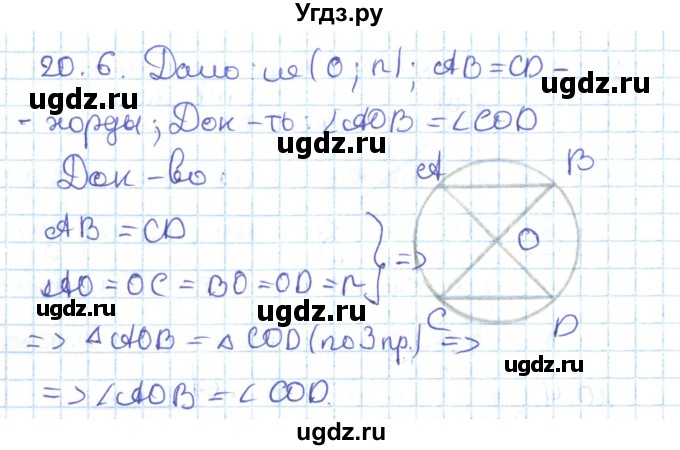 Угдз.ру
20.6. Дано: ω(O; r); AB = CD –
– хорды; Док-ть: ∠AOB = ∠COD
Док-во:
AB = CD
AO = OC = BO = OD = r } =>
=> △AOB = △COD (по 3 пр.) =>
=> ∠AOB = ∠COD.
A
B
O
C
D
ugdz.ru
ugdz.ru
ugdz.ru
ugdz.ru
ugdz.ru
ugdz.ru
ugdz.ru
ugdz.ru